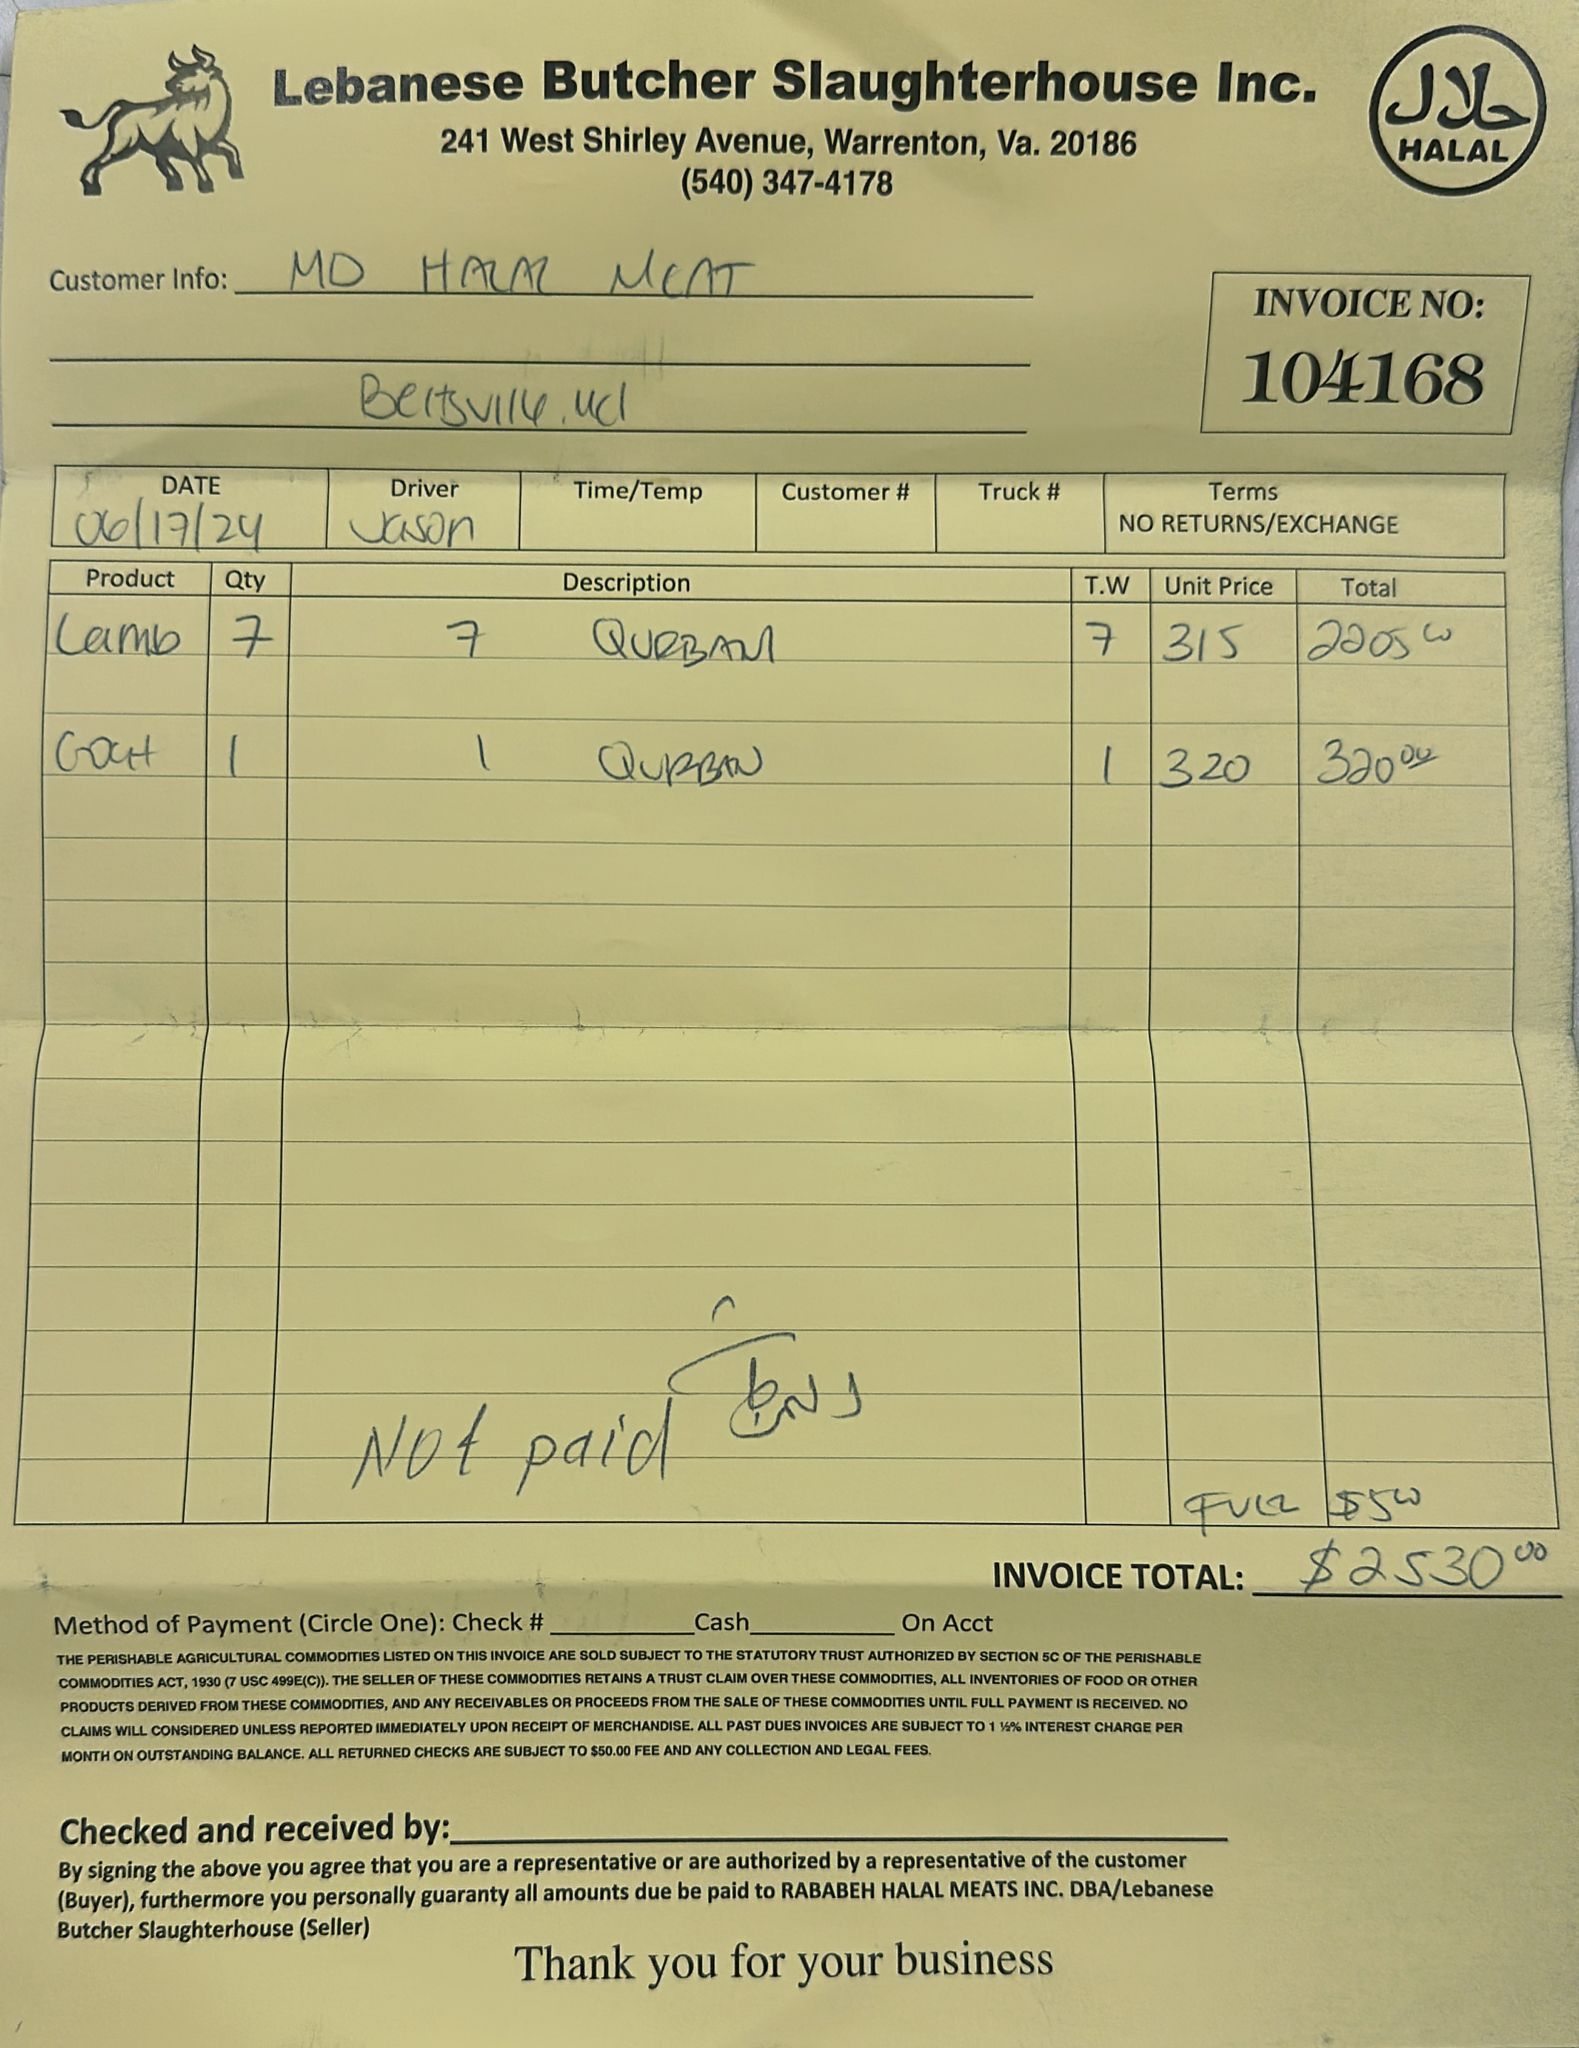 Lebanese Butcher Slaughterhouse Inc.
241 West Shirley Avenue, Warrenton, Va. 20186
(540) 347-4178
حلال
HALAL
Customer Info: MD HALAL MEAT
Beltsville, Md
INVOICE NO:
104168
DATE Driver Time/Temp Customer # Truck # Terms
06/17/24 Jason NO RETURNS/EXCHANGE
Product Qty Description T.W Unit Price Total
Lamb 7 7 QURBANI 7 315 2205 00
GOAT 1 1 QURBAN 1 320 320 00
Not paid
FUEL $5 00
INVOICE TOTAL: $2530 00
Method of Payment (Circle One): Check # Cash On Acct
THE PERISHABLE AGRICULTURAL COMMODITIES LISTED ON THIS INVOICE ARE SOLD SUBJECT TO THE STATUTORY TRUST AUTHORIZED BY SECTION 5C OF THE PERISHABLE
COMMODITIES ACT, 1930 (7 USC 499E(C)). THE SELLER OF THESE COMMODITIES RETAINS A TRUST CLAIM OVER THESE COMMODITIES, ALL INVENTORIES OF FOOD OR OTHER
PRODUCTS DERIVED FROM THESE COMMODITIES, AND ANY RECEIVABLES OR PROCEEDS FROM THE SALE OF THESE COMMODITIES UNTIL FULL PAYMENT IS RECEIVED. NO
CLAIMS WILL CONSIDERED UNLESS REPORTED IMMEDIATELY UPON RECEIPT OF MERCHANDISE. ALL PAST DUES INVOICES ARE SUBJECT TO 1 ½% INTEREST CHARGE PER
MONTH ON OUTSTANDING BALANCE. ALL RETURNED CHECKS ARE SUBJECT TO $50.00 FEE AND ANY COLLECTION AND LEGAL FEES.
Checked and received by:
By signing the above you agree that you are a representative or are authorized by a representative of the customer
(Buyer), furthermore you personally guaranty all amounts due be paid to RABABEH HALAL MEATS INC. DBA/Lebanese
Butcher Slaughterhouse (Seller)
Thank you for your business